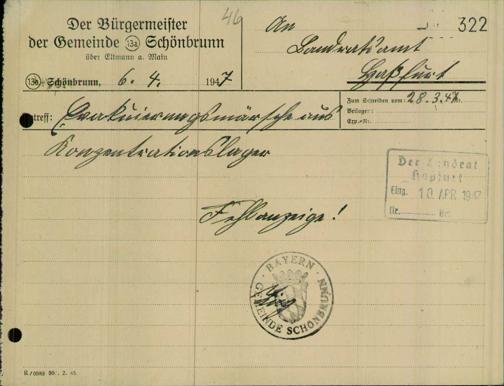 46
322
Der Bürgermeister
der Gemeinde (13a) Schönbrunn
über Eltmann a. Main
An
Landratsamt
Haßfurt
(13a) Schönbrunn, 6. 4. 1947
Zum Schreiben vom: 28.3.47.
Beilagen:
Exp.-Nr.
Betreff: Evakuierungsmärsche aus
Konzentrationslager
Der Landrat
Haßfurt
Eing. 10. APR. 1947
Nr.
Fehlanzeige!
BAYERN
GEMEINDE SCHÖNBRUNN